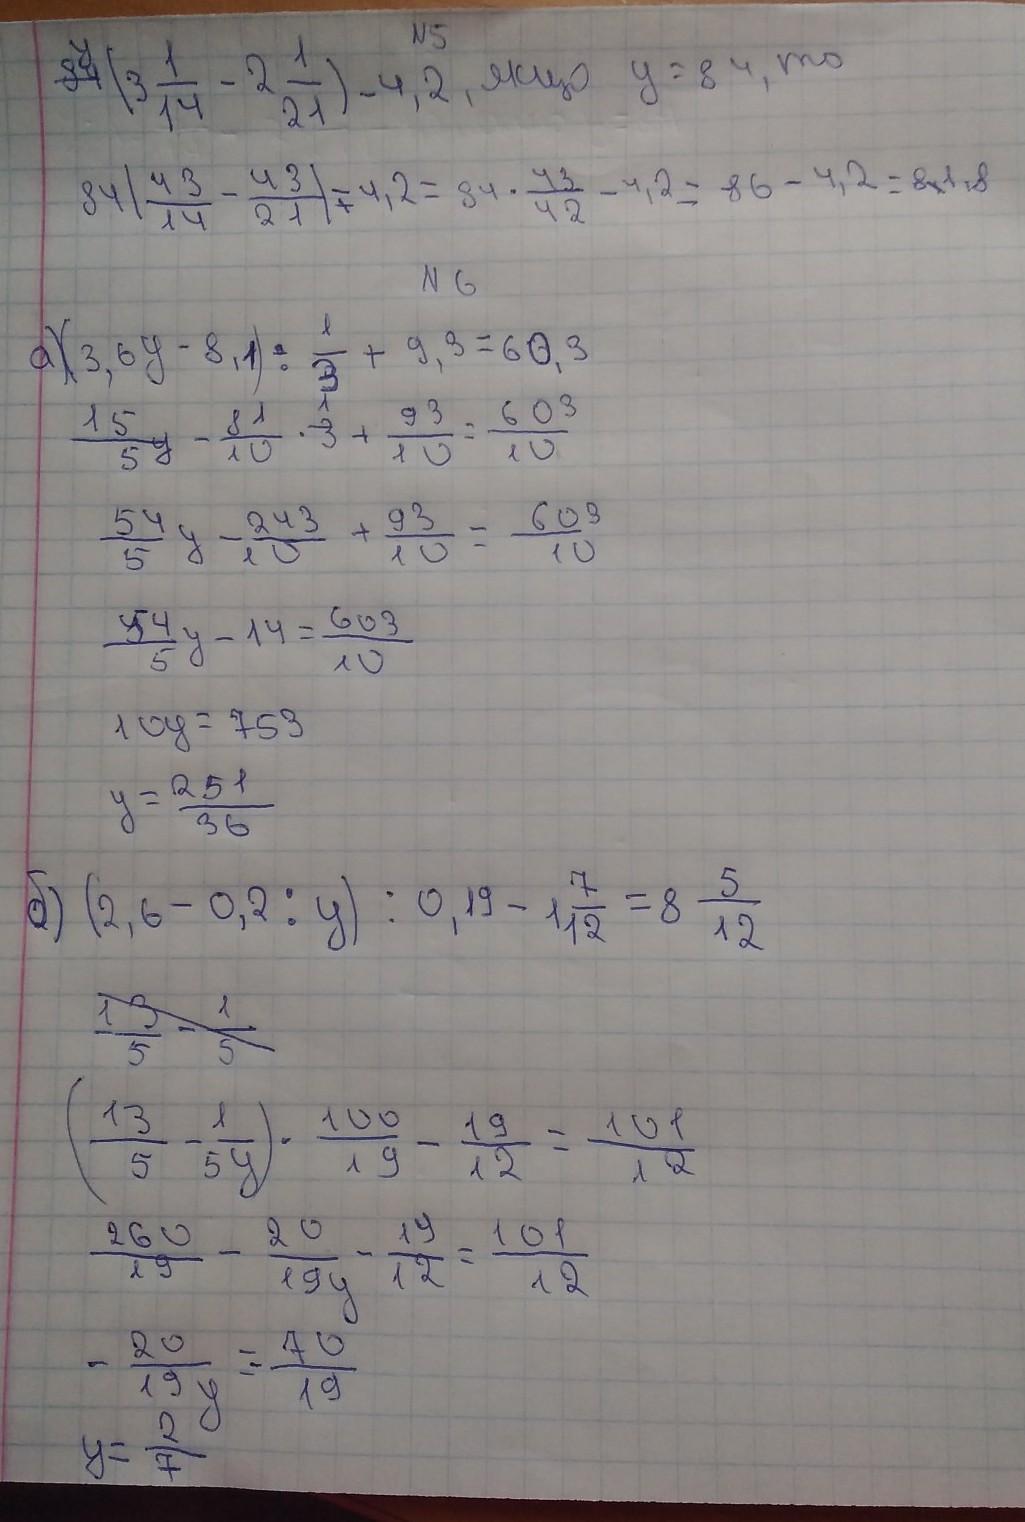 N5
84(3 1/14 - 2 1/21) - 4,2, якщо y = 84, то
84(43/14 - 43/21) - 4,2 = 84 · 43/42 - 4,2 = 86 - 4,2 = 81,8
N 6
а) (3,6y - 8,1) : 1/3 + 9,3 = 60,3
15/5y - 81/10 · 3 + 93/10 = 603/10
54/5 y - 243/10 + 93/10 = 603/10
54/5 y - 14 = 603/10
10y = 753
y = 251/36
б) (2,6 - 0,2 : y) : 0,19 - 1 7/12 = 8 5/12
13/5 - 1/5
(13/5 - 1/5y) · 100/19 - 19/12 = 101/12
260/19 - 20/19y - 19/12 = 101/12
- 20/19y = 70/19
y = 2/7